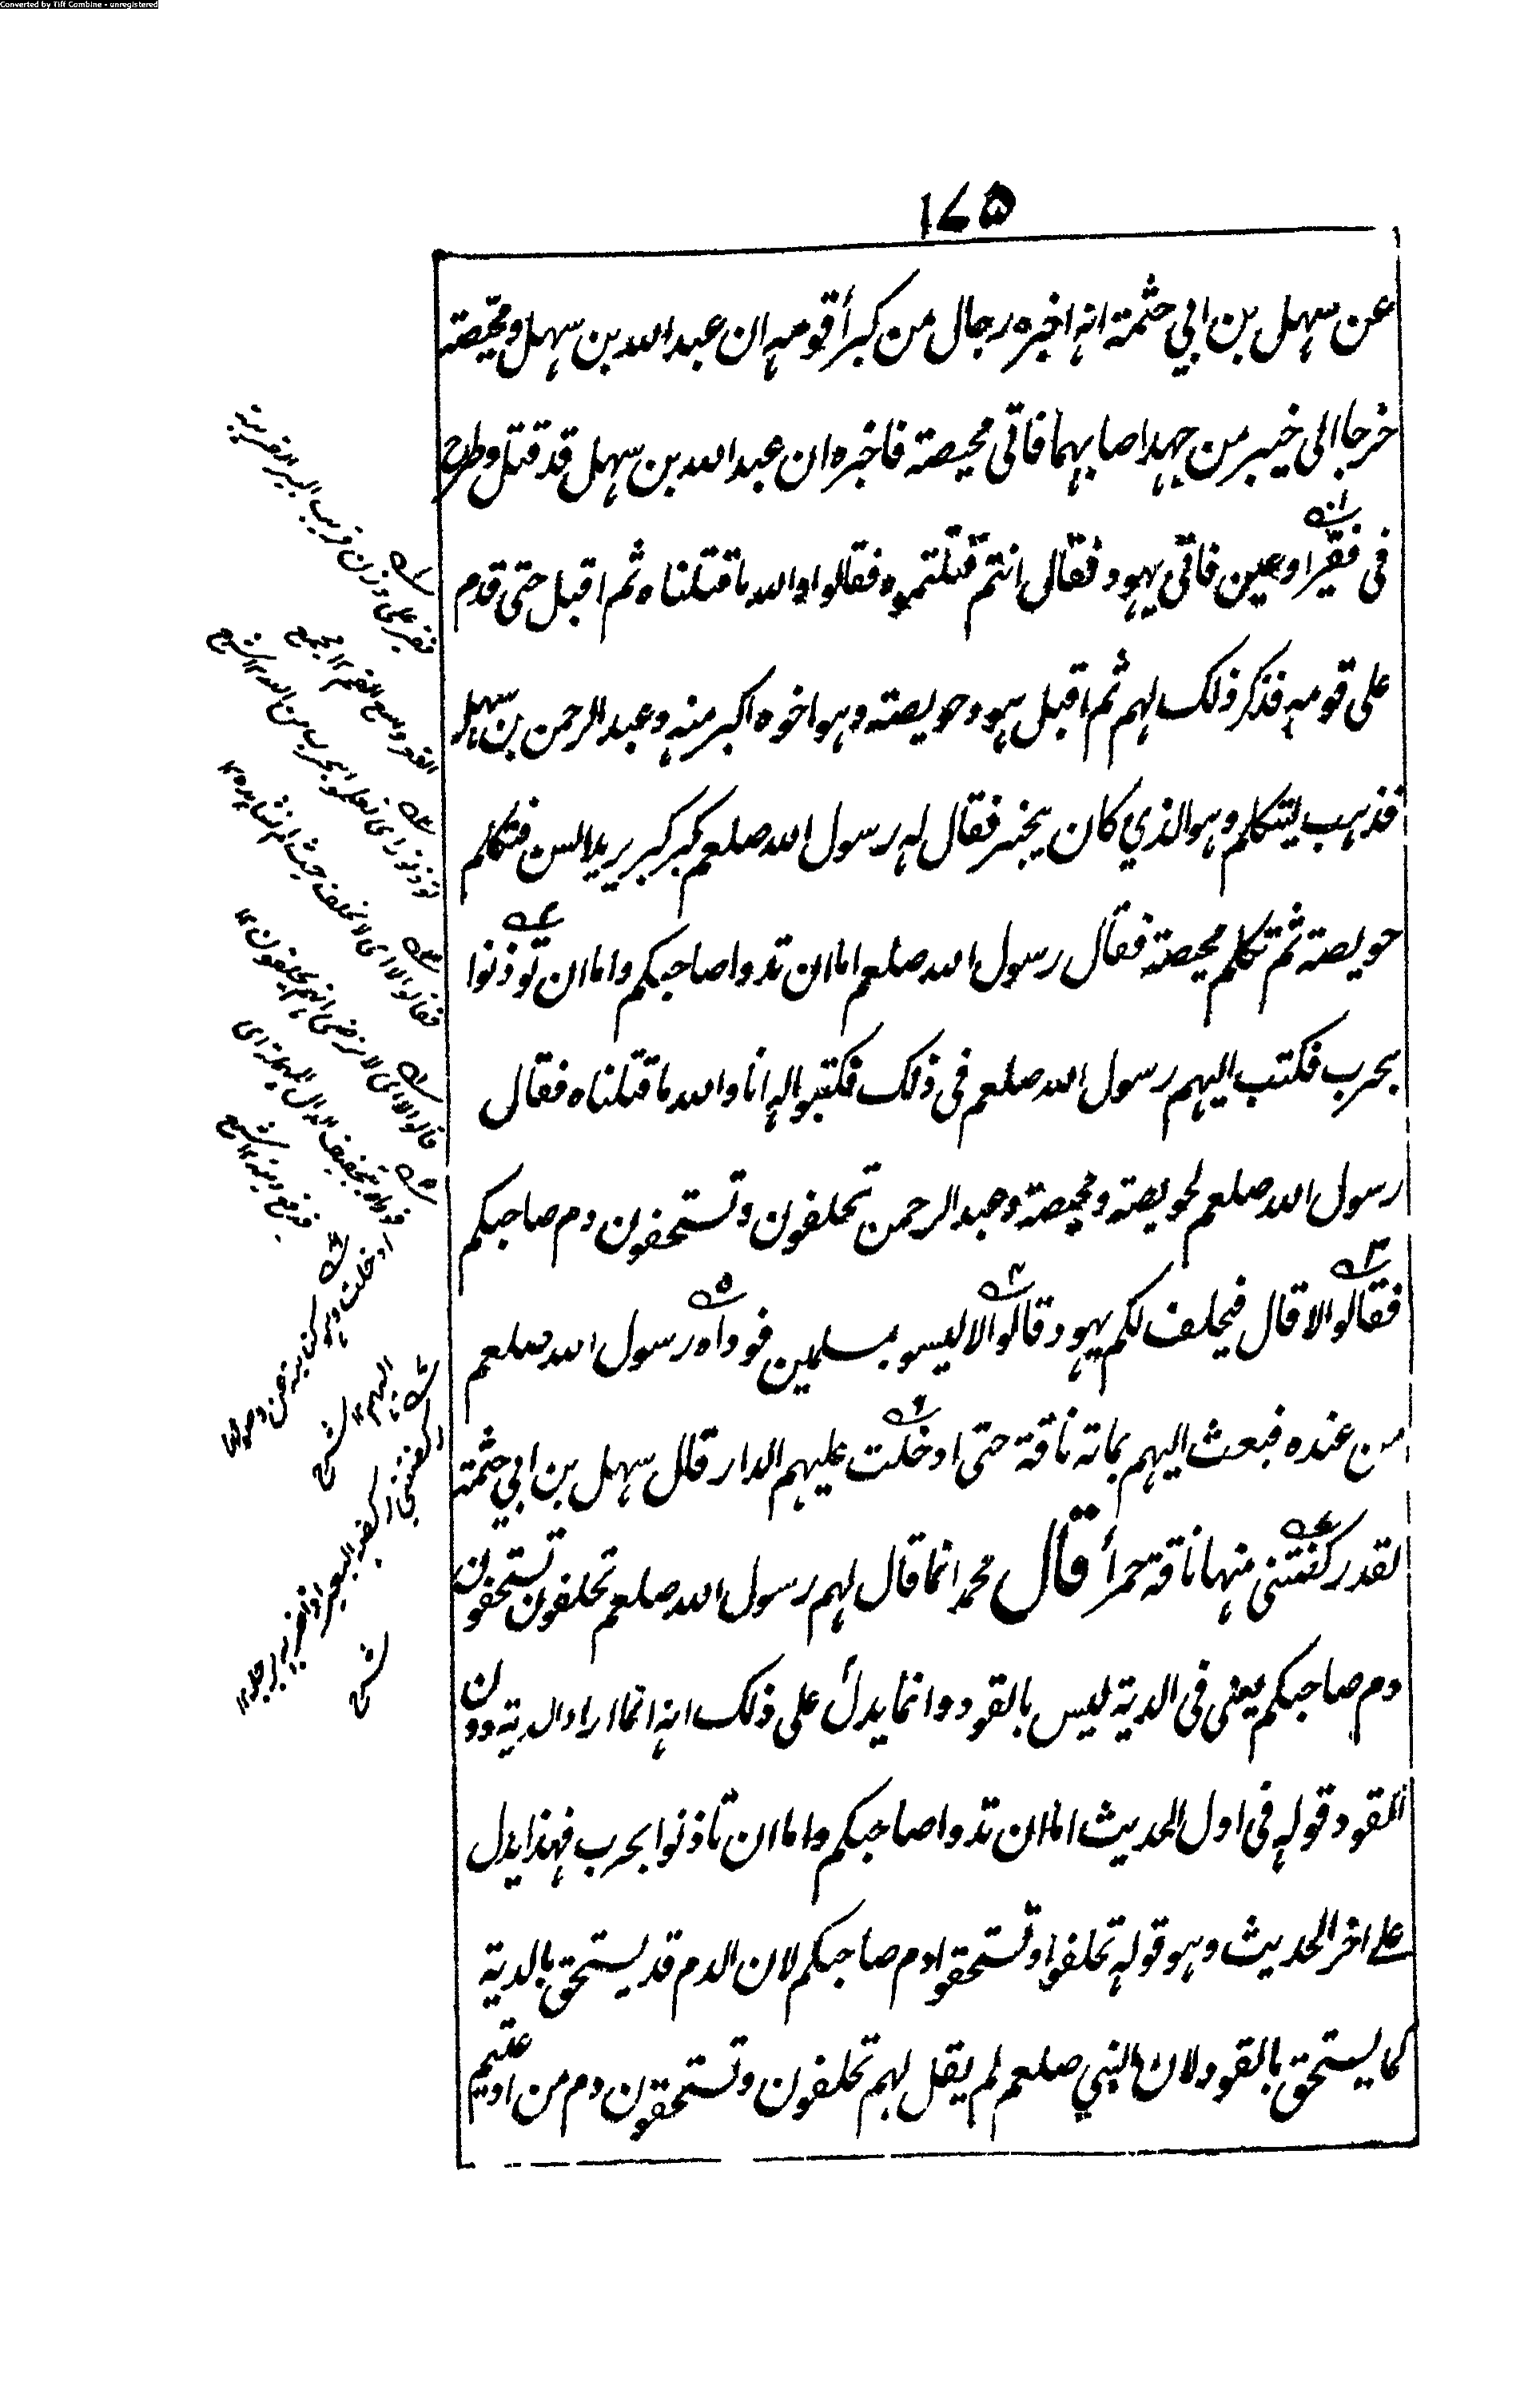 Converted by Tiff Combine - unregistered
١٧٥
عن سهل بن ابي حثمة انه اخبره رجال من كبرأ قومه ان عبد الله بن سهل و محيصة
خرجا الى خيبر من جهد اصابهما فاتى محيصة فاخبره ان عبد الله بن سهل قد قتل وطرح
فى فقير او عين فاتى يهود فقال انتم قتلتموه فقالوا والله ما قتلناه ثم اقبل حتى قدم
على قومه فذكر ذلك لهم ثم اقبل هو و حويصة وهو اخوه اكبر منه و عبد الرحمن بن سهل
فذهب ليتكلم وهو الذي كان بخيبر فقال له رسول الله صلعم كبر كبر يريد السن فتكلم
حويصة ثم تكلم محيصة فقال رسول الله صلعم اما ان تدوا صاحبكم واما ان توذنوا
بحرب فكتب اليهم رسول الله صلعم فى ذلك فكتبوا اليه انا والله ما قتلناه فقال
رسول الله صلعم لحويصة و محيصة و عبد الرحمن تحلفون وتستحقون دم صاحبكم
فقالوا لا قال فيحلف لكم يهود قالوا لا ليسو بمسلمين فوداه رسول الله صلعم
من عنده فبعث اليهم بماته ناقة حتى ادخلت عليهم الدار قال سهل بن ابي حثمة
لقد ركضتنى منها ناقة حمرأ قال محمد انما قال لهم رسول الله صلعم تحلفون تستحقون
دم صاحبكم يعنى فى الدية ليس بالقود وانما يدل على ذلك انه انما اراد الدية دون
القود قوله فى اول الحديث اما ان تدوا صاحبكم واما ان تاذنوا بحرب فهذا يدل
على اخر الحديث وهو قوله تحلفوا وتستحقوا دم صاحبكم لان الدم قد يستحق بالدية
كما يستحق بالقود لان النبي صلعم لم يقل لهم تحلفون وتستحقون دم من ادعيتم
فقالوا لا اى لا نحلف حيث لم نشاهده ١٢
قالوا لا اى لا نرضى انهم يحلفون ١٢
فوداه بتخفيف الدال المهملة اى
ادخلت وهو كناية عن وصولها
اليهم ١٢ شرح
ركضتنى ركضه البعير اذا ضربه برجله ١٢
شرح